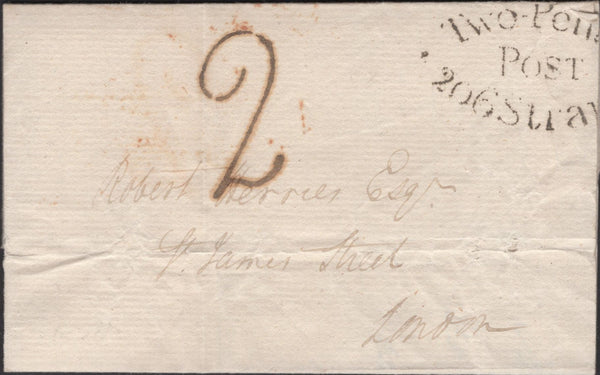 Two-Pen
POST
206 Stra
2
Robert Herries Esqr.
St. James Street
London